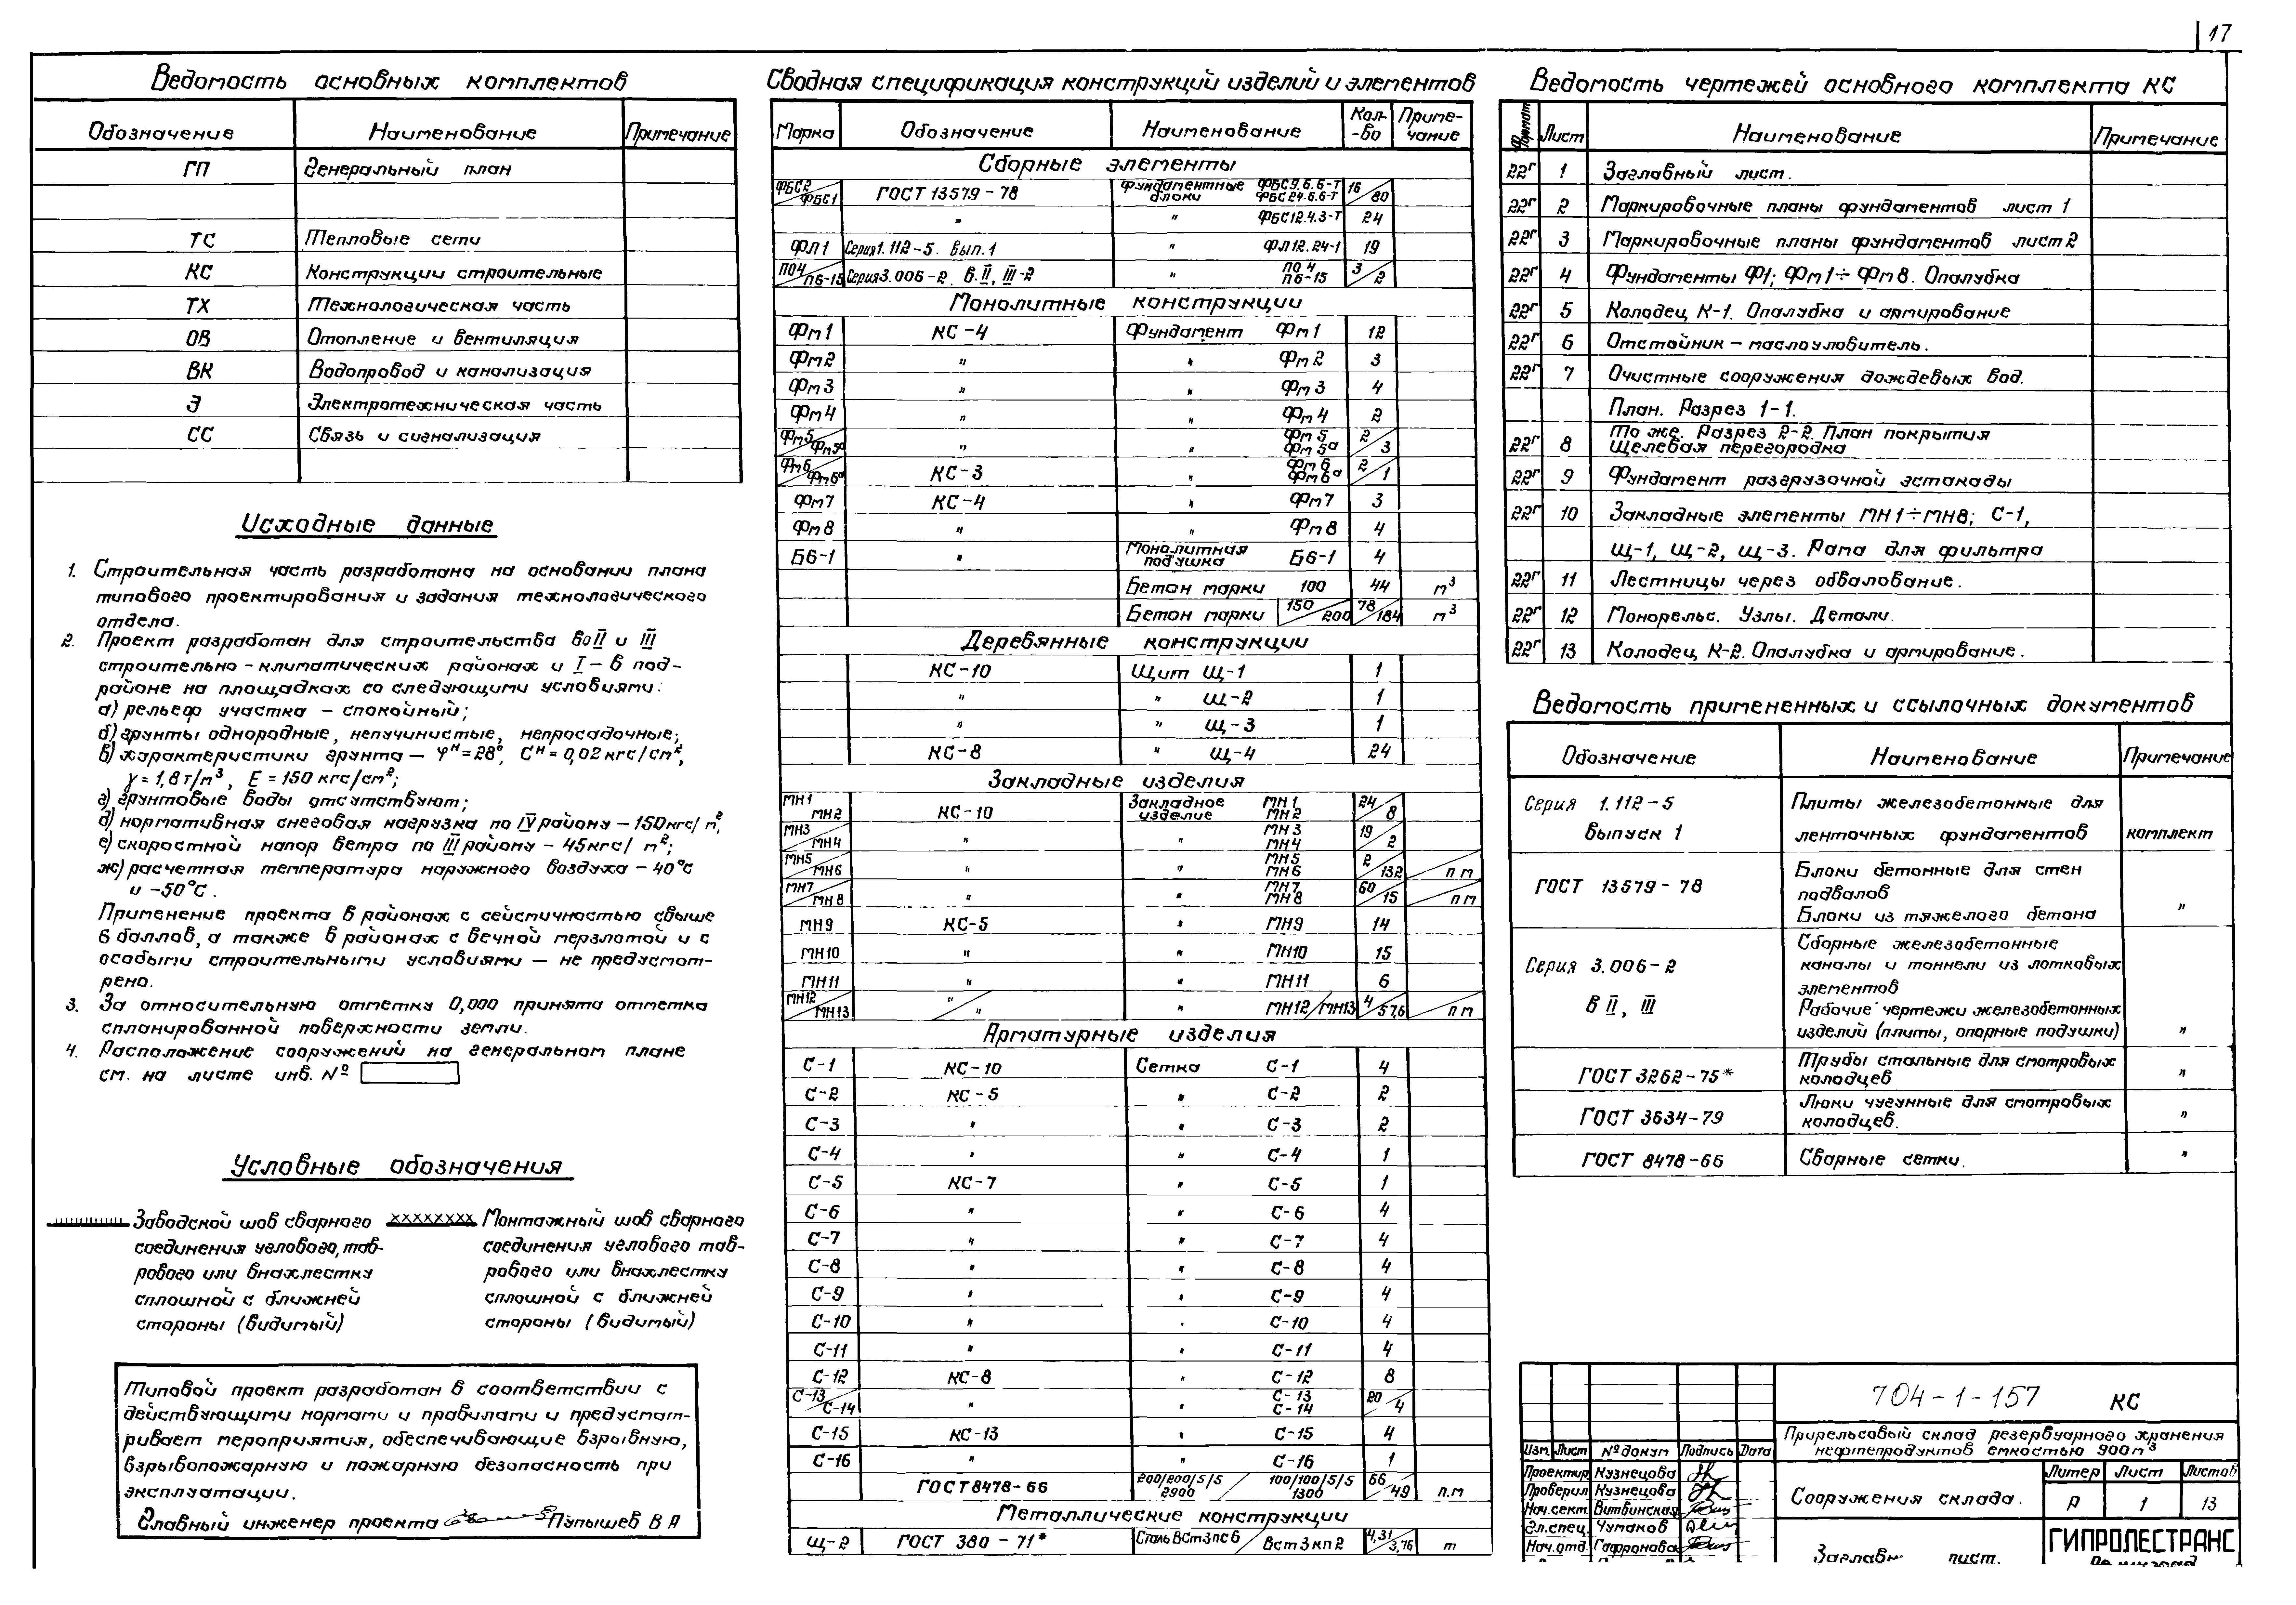 17
Ведомость основных комплектов
Обозначение Наименование Примечание
ГП Генеральный план
ТС Тепловые сети
КС Конструкции строительные
ТХ Технологическая часть
ОВ Отопление и вентиляция
ВК Водопровод и канализация
Э Электротехническая часть
СС Связь и сигнализация
Исходные данные
1. Строительная часть разработана на основании плана
типового проектирования и задания технологического
отдела.
2. Проект разработан для строительства во II и III
строительно-климатических районах и I-в под-
районе на площадках со следующими условиями:
а) рельеф участка – спокойный;
б) грунты однородные, непучинистые, непросадочные;
в) характеристики грунта – φн=28°, Сн=0,02 кгс/см²,
γ=1,8т/м³, Е=150 кгс/см²;
г) грунтовые воды отсутствуют;
д) нормативная снеговая нагрузка по IV району – 150кгс/м²,
е) скоростной напор ветра по III району – 45кгс/м²;
ж) расчетная температура наружного воздуха –40°С
и –50°С.
Применение проекта в районах с сейсмичностью свыше
6 баллов, а также в районах с вечной мерзлотой и с
особыми строительными условиями – не предусмот-
рено.
3. За относительную отметку 0,000 принята отметка
спланированной поверхности земли.
4. Расположение сооружений на генеральном плане
см. на листе инв. №
Условные обозначения
Заводской шов сварного
соединения углового, тав-
рового или внахлестку
сплошной с ближней
стороны (видимый)
Монтажный шов сварного
соединения углового тав-
рового или внахлестку
сплошной с ближней
стороны (видимый)
Типовой проект разработан в соответствии с
действующими нормами и правилами и предусмат-
ривает мероприятия, обеспечивающие взрывную,
взрывопожарную и пожарную безопасность при
эксплуатации.
Главный инженер проекта Пупышев В А
Сводная спецификация конструкций изделий и элементов
Марка Обозначение Наименование Кол-во Примечание
Сборные элементы
ФБС2/ФБС1 ГОСТ 13579-78 Фундаментные блоки ФБС9.6.6-Т ФБС24.6.6-Т 16/80
" " ФБС12.4.3-Т 24
ФЛ1 Серия 1.112-5. вып.1 " ФЛ12.24-1 19
ПО4/П6-15 Серия 3.006-2. в.II, III-2 " ПО 4 П6-15 3/2
Монолитные конструкции
Фм1 КС-4 Фундамент Фм1 12
Фм2 " " Фм2 3
Фм3 " " Фм3 4
Фм4 " " Фм4 2
Фм5/Фм5а " " Фм5 Фм5а 2/3
Фм6/Фм6а КС-3 " Фм6 Фм6а 2/1
Фм7 КС-4 " Фм7 3
Фм8 " " Фм8 4
Б6-1 " Монолитная подушка Б6-1 4
Бетон марки 100 44 м³
Бетон марки 150/200 78/184 м³
Деревянные конструкции
КС-10 Щит Щ-1 1
" " Щ-2 1
" " Щ-3 1
КС-8 " Щ-4 24
Закладные изделия
МН1/МН2 КС-10 Закладное изделие МН1 МН2 24/8
МН3/МН4 " " МН3 МН4 19/2
МН5/МН6 " " МН5 МН6 2/132 п м
МН7/МН8 " МН7 МН8 60/15 п м
МН9 КС-5 " МН9 14
МН10 " " МН10 15
МН11 " " МН11 6
МН12/МН13 "/" " МН12/МН13 4/57,6 п м
Арматурные изделия
С-1 КС-10 Сетка С-1 4
С-2 КС-5 " С-2 2
С-3 " " С-3 2
С-4 " " С-4 1
С-5 КС-7 " С-5 1
С-6 " " С-6 4
С-7 " " С-7 4
С-8 " " С-8 4
С-9 " " С-9 4
С-10 " " С-10 4
С-11 " " С-11 4
С-12 КС-8 " С-12 8
С-13/С-14 " " С-13 С-14 20/4
С-15 КС-13 " С-15 4
С-16 " " С-16 1
ГОСТ 8478-66 200/200/5/5 2900 / 100/100/5/5 1300 66/49 п.м
Металлические конструкции
Щ-2 ГОСТ 380-71* Сталь ВСт3пс6 / Вст3кп2 4,31/3,76 т
Ведомость чертежей основного комплекта КС
Формат Лист Наименование Примечание
22г 1 Заглавный лист.
22г 2 Маркировочные планы фундаментов лист 1
22г 3 Маркировочные планы фундаментов лист 2
22г 4 Фундаменты Ф1; Фм1÷Фм8. Опалубка
22г 5 Колодец К-1. Опалубка и армирование
22г 6 Отстойник – маслоуловитель.
22г 7 Очистные сооружения дождевых вод.
План. Разрез 1-1.
22г 8 То же. Разрез 2-2. План покрытия
Щелевая перегородка
22г 9 Фундамент разгрузочной эстакады
22г 10 Закладные элементы МН1÷МН8; С-1,
Щ-1, Щ-2, Щ-3. Рама для фильтра
22г 11 Лестницы через обвалование.
22г 12 Монорельс. Узлы. Детали.
22г 13 Колодец К-2. Опалубка и армирование.
Ведомость примененных и ссылочных документов
Обозначение Наименование Примечание
Серия 1.112-5 Плиты железобетонные для
выпуск 1 ленточных фундаментов комплект
ГОСТ 13579-78 Блоки бетонные для стен
подвалов
Блоки из тяжелого бетона "
Серия 3.006-2 Сборные железобетонные
каналы и тоннели из лотковых
элементов
в II, III Рабочие чертежи железобетонных
изделий (плиты, опорные подушки) "
ГОСТ 3262-75* Трубы стальные для смотровых
колодцев "
ГОСТ 3634-79 Люки чугунные для смотровых
колодцев. "
ГОСТ 8478-66 Сварные сетки. "
704-1-157 КС
Прирельсовый склад резервуарного хранения
нефтепродуктов емкостью 900м³
Изм Лист № докум Подпись Дата
Проектир Кузнецова
Проверил Кузнецова
Нач.сект. Витвинская
Гл.спец. Чумаков
Нач.отд. Гафронова
Сооружения склада.
Литер Лист Листов
Р 1 13
лист.
ГИПРОЛЕСТРАНС